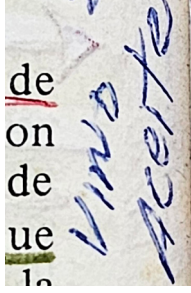 de
on
de
ue
la
vino
aceite